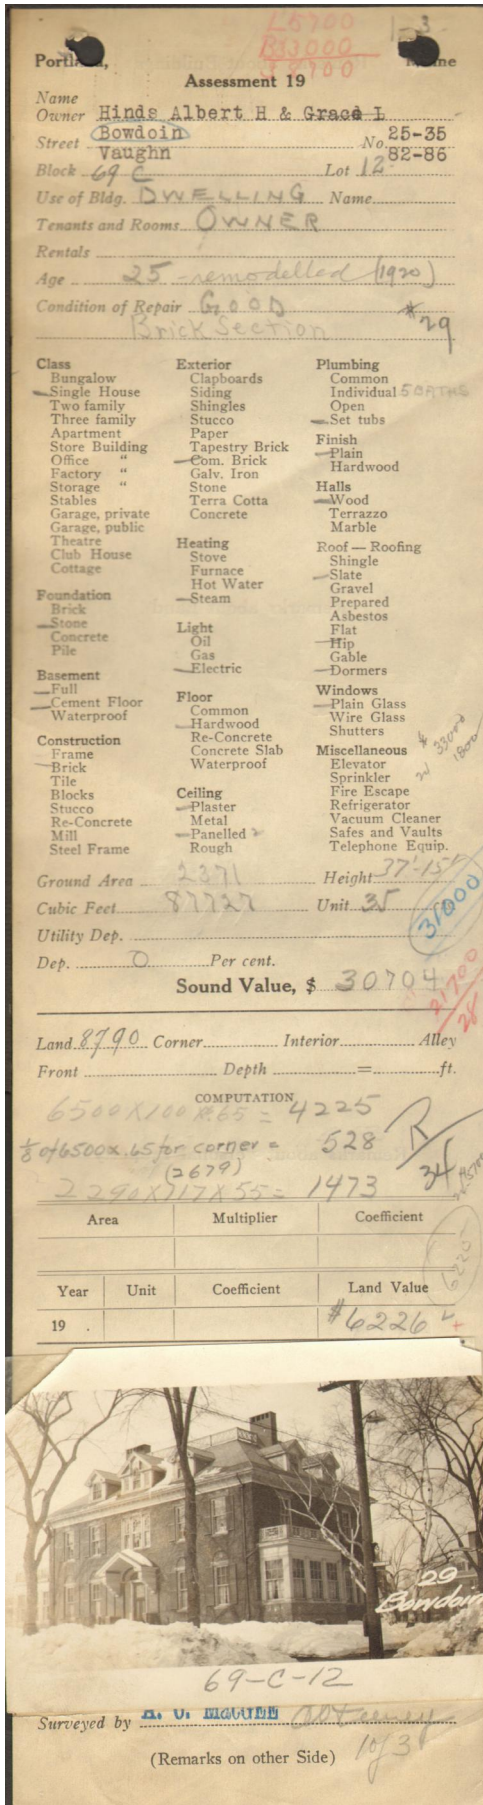 L 5700
B 33000
38700
1-3
Portland, Maine
Assessment 19
Name
Owner Hinds Albert H & Grace L
Street Bowdoin No. 25-35
Vaughn 82-86
Block 69 C Lot 12
Use of Bldg. DWELLING Name
Tenants and Rooms OWNER
Rentals
Age 25 - remodelled (1920)
Condition of Repair GOOD #29
Brick Section
Class
Bungalow
Single House
Two family
Three family
Apartment
Store Building
Office "
Factory "
Storage "
Stables
Garage, private
Garage, public
Theatre
Club House
Cottage
Foundation
Brick
Stone
Concrete
Pile
Basement
Full
Cement Floor
Waterproof
Construction
Frame
Brick
Tile
Blocks
Stucco
Re-Concrete
Mill
Steel Frame
Exterior
Clapboards
Siding
Shingles
Stucco
Paper
Tapestry Brick
Com. Brick
Galv. Iron
Stone
Terra Cotta
Concrete
Heating
Stove
Furnace
Hot Water
Steam
Light
Oil
Gas
Electric
Floor
Common
Hardwood
Re-Concrete
Concrete Slab
Waterproof
Ceiling
Plaster
Metal
Panelled 2
Rough
Plumbing
Common
Individual 5 BATHS
Open
Set tubs
Finish
Plain
Hardwood
Halls
Wood
Terrazzo
Marble
Roof — Roofing
Shingle
Slate
Gravel
Prepared
Asbestos
Flat
Hip
Gable
Dormers
Windows
Plain Glass
Wire Glass
Shutters
Miscellaneous
Elevator
Sprinkler
Fire Escape
Refrigerator
Vacuum Cleaner
Safes and Vaults
Telephone Equip.
33000
1800
Ground Area 2371 Height 37'-15'
Cubic Feet 87727 Unit 35
31000
Utility Dep.
Dep. 0 Per cent.
Sound Value, $ 30704
21700
28
Land 8790 Corner Interior Alley
Front Depth = ft.
COMPUTATION
6500 X 100 X .65 = 4225
1/8 of 6500 x .65 for corner = 528
(2679)
2290 X 117 X 55 = 1473
R/34
Area Multiplier Coefficient
6226
Year Unit Coefficient Land Value
19 . $6226
29
Bowdoin
69-C-12
Surveyed by
1 of 3
(Remarks on other Side)